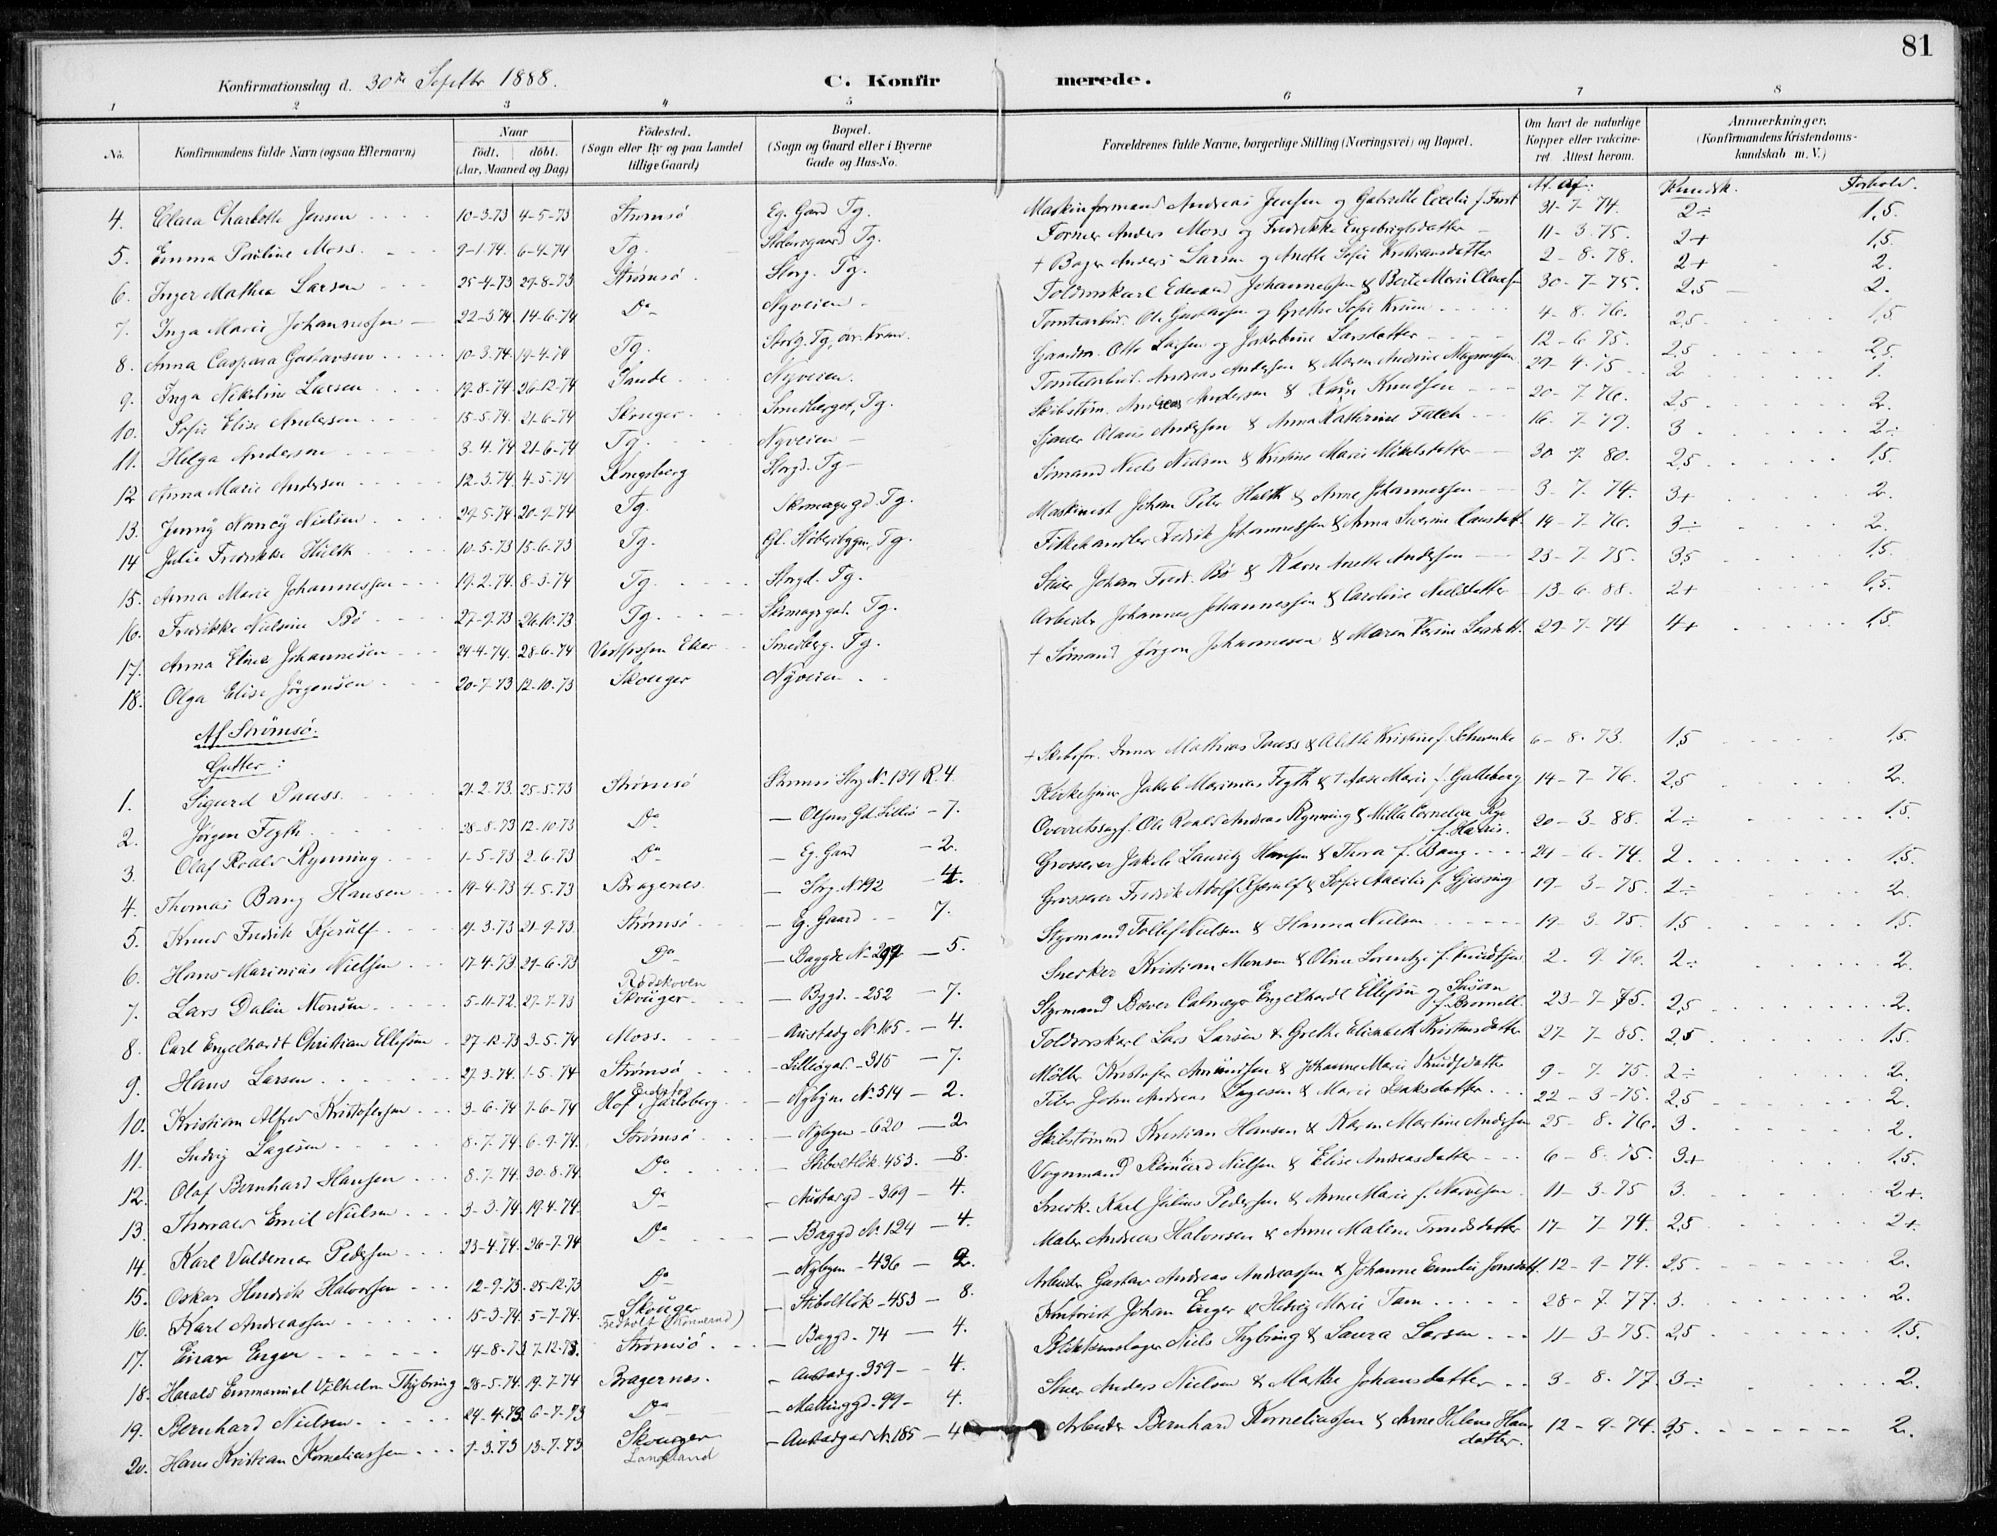 81
Konfirmationsdag d. 30te Septbr 1888. C. Konfirmerede.
1 2 3 4 5 6 7 8
No. Konfirmandens fulde Navn (ogsaa Efternavn) Naar födt. döbt. (Aar, Maaned og Dag) Födested. (Sogn eller By og paa Landet tillige Gaard) Bopæl. (Sogn og Gaard eller i Byerne Gade og Hus-No. Forældrenes fulde Navne, borgerlige Stilling (Næringsvei) og Bopæl. Om havt de naturlige Kopper eller vaccineret. Attest herom. Anmærkninger. (Konfirmandens Kristendomskundskab m. V.)
At. af: Kundsk. Forhold.
4. Clara Charlotte Jensen 10-3-73 4-5-73 Strømsö Eg. Gard Tg. Maskinformand Andreas Jensen og Gabrielle Cecilie f. 31-7-74. 2÷ 1,5.
5. Emma Pauline Moss 9-1-74 6-4-74 Tg. Tg. Former Anders Moss og Fredrikke Engebrigtsdatter 11-3-75. 2+ 1,5.
6. Inger Mathea Larsen 25-4-73 29-8-73 Strømsö Storg. Tg. + Bager Anders Larsen og Anette Sofie Kristiansdatter 2-8-78. 2+ 2.
7. Inga Marie Johannessen 22-3-74 14-6-74 Do Nyveien Toldvorskarl Edevard Johannessen & Berte Marie Olavsen 30-7-75. 2,5 2.
8. Anna Caspara Gustavsen 10-3-74 19-4-74 Tg. Storg. Tg, Tomtearbeid. Ole Gustavsen og Grethe Sofie 4-8-76. 2,5 1,5.
9. Inga Nikoline Larsen 19-8-74 26-12-74 Sande Nyveien. Gaardm. Otto Larsen og Jakobine Larsdatter 12-6-75. 2,5 2,5.
10. Sofie Elise Andersen 15-5-74 21-6-74 Skouger Smedberget, Tg. Tomtearbeid. Andreas Andersen & Maren Andrine Magnussen 29-4-75 2 1.
11. Helga Andersen 3-4-74 21-6-74 Tg. Nyveien Skibstöm. Andreas Andersen & Karen Knudsen 20-7-76. 2,5 2.
12. Anna Marie Andersen 12-3-74 4-5-74 Kongsberg Storgd. Tg Sjauer Olaus Andersen & Anna Katherine Falch 16-7-79. 3 2÷
13. Jenny Nancy Nielsen 29-5-74 20-9-74 Tg. Skomagergd. Tg. Sömand Niels Nielsen & Kristine Marie Mikelsdatter 30-7-80. 2,5 1,5.
14. Julie Fredrikke Hulth 10-5-73 15-6-73 Tg. Gl. Tg. Maskinist Johan Peter Hulth & Anne Johannessen 3-7-74. 3+ 2.
15. Anna Marie Johannessen 19-2-74 8-3-74 Tg. Storgd. Tg. Fiskehandler Fredrik Johannessen & Anna Severine 14-7-76. 3÷ 2.
16. Fredrikke Nielsine Bö 27-9-73 26-10-73 Tg. Skomagrgad. Tg. Stuer Johan Fredr. Bö & Karen Anette Andersen 23-7-75. 3,5 1,5.
17. Anna Eline Johannesen 24-4-74 28-6-74 Eker Smedberg. Tg. Arbeider Johannes Johannessen & Caroline Nielsdatter 13-6-88. 2+ 1,5.
18. Olga Elise Jörgensen 20-7-73 12-10-73 Skouger Nyveien + Sömand Jörgen Johannesen & Maren Karine 29-7-74 4+ 1,5.
Af Strömsö.
Gutter:
1. Sigurd Pauss 21-2-73 25-5-73 Strömsö Strömsö Storg No 139 R. 4. + Skibsfør. Mathias Pauss & Alethe Kristine f. Schwencke 6-8-73. 1,5 1,5.
2. Jörgen Fegth 28-8-73 12-10-73 Do Olsens Gd. Lilleö - 7. Kirketjener Jakob Marinius Fegth & Aase Marie f. Galteberg 14-7-76. 2,5 2.
3. Olaf Roald Rynning 1-5-73 2-6-73 Do Eg. Gard - 2. Overretssagf. Ole Roald Andreas Rynning & Milla Cornelia Rye f. Harris. 20-3-88. 2÷ 1,5.
4. Thomas Bang Hansen 14-4-73 4-5-73 Bragenes Strg. No 192 - 4. Grosserer Jakob Lauritz Hansen & Thora f. Bang 24-6-74. 2. 1,5.
5. Knud Fredrik Kjerulf 14-3-73 21-9-73 Strömsö Eg. Gaard - 7. Grosserer Fredrik Adolf Kjerulf & Sofie f. Gjessing 19-3-75. 2÷ 2.
6. Hans Marinius Nielsen 17-4-73 29-6-73 Do Baggde No 297 - 5. Styrmand Tollef Nielsen & Hanna Nielsen 19-3-75 1,5 1,5.
7. Lars Dalin Monsen 5-11-72 27-7-73 Rødskoven Skouger Bygd. 252 - 7. Snerker Kristian Monsen & Oline Lorentze f. Knudsen 2-9-76. 2÷ 2.
8. Carl Engelhardt Christian Ellefsen 27-12-73 3-5-74 Moss. Austadg No 165. - 4. Styrmand Bæver Calmeyer Engelhardt Ellefsen og Susan f. Bromell. 23-7-75. 2,5 2.
9. Hans Larsen 27-3-74 1-5-74 Strömsö Lilleögad. 316 - 7. Toldvorskarl Lars Larsen & Grethe Elisabeth Kristensdatter 27-7-85. 2,5 1,5.
10. Kristian Alfred Kristofersen 3-6-74 7-6-74 Hof i Jarlsberg Nybyen No 514 - 2. Möller Kristofer Amundsen & Johanne Marie Knudsdatter 9-7-75. 2÷ 2.
11. Ludvig Lagesen 8-7-74 6-9-74 Strömsö Nybyen 620 - 2 John Andreas Lagesen & Marie Isaksdatter 22-3-75. 2,5 2.
12. Olaf Bernhard Hansen 8-7-74 30-8-74 Do Stiboltlök. 453. - 8. Skibstömmd Kristian Hansen & Karen Martine Andersen 25-8-76. 3. 2.
13. Thorvald Emil Nielsen 3-3-74 19-4-74 Do Austargd 369 - 4. Vognmand Reinhard Nielsen & Elise Andreasdatter 6-8-75. 3+ 1,5.
14. Karl Valdemar Pedersen 23-4-74 26-7-74 Do Baggd No 124 - 4. Snerk. Karl Julius Pedersen & Anne Marie f. Narvesen 11-3-75 3. 2+.
15. Oskar Hendrik Halvorsen 12-9-73 25-12-73 Do Nybyen 436 - 2. Maler Andreas Halvorsen & Anne Malene Trondsdatter 17-7-74. 2,5 2+
16. Karl Andreassen 15-3-74 5-7-74 Skouger Stiboltlök 453 - 8. Arbeider Gustav Andreas Andreassen & Johanne Emilie Jonsdatt. 12-9-74. 2,5. 2.
17. Einar Enger 14-8-73 7-12-73. Strömsö Baggd. 74 - 4. Kontorist Johan Enger & Hedvig Marie Tam 28-7-77. 3. 2.
18. Harald Emmanuel Vilhelm Thybring 28-5-74 19-7-74 Bragernes. Austadg. 359 - 4. Blikkenslager Niels Thybring & Laura Larsen 11-3-75. 2,5 1,5.
19. Bernhard Nielsen 24-4-73 6-7-73 Do Maltinggd. 99 - 4. Stuer Anders Nielsen & Marthe Johansdatter 3-8-77. 3÷ 2.
20. Hans Kristian Korneliussen 7-3-73 13-7-73 Skouger Langeland Austadgad No. 185 - 4 Arbeider Bernhard Korneliussen & Anne Helene Hansdatter. 12-9-74. 3,5. 2.